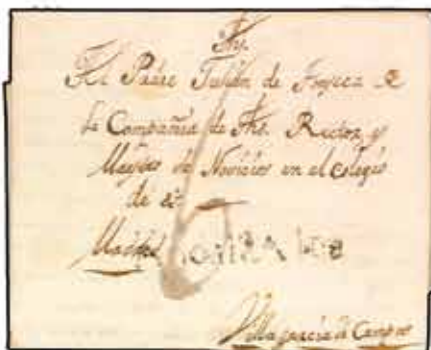 Jhs.
Al Padre Julián de Fonseca de
la Compañía de Jhs. Rector, y
Maestro de Novicios en el Colegio
de &
Madrid
Villagarcía de Campos